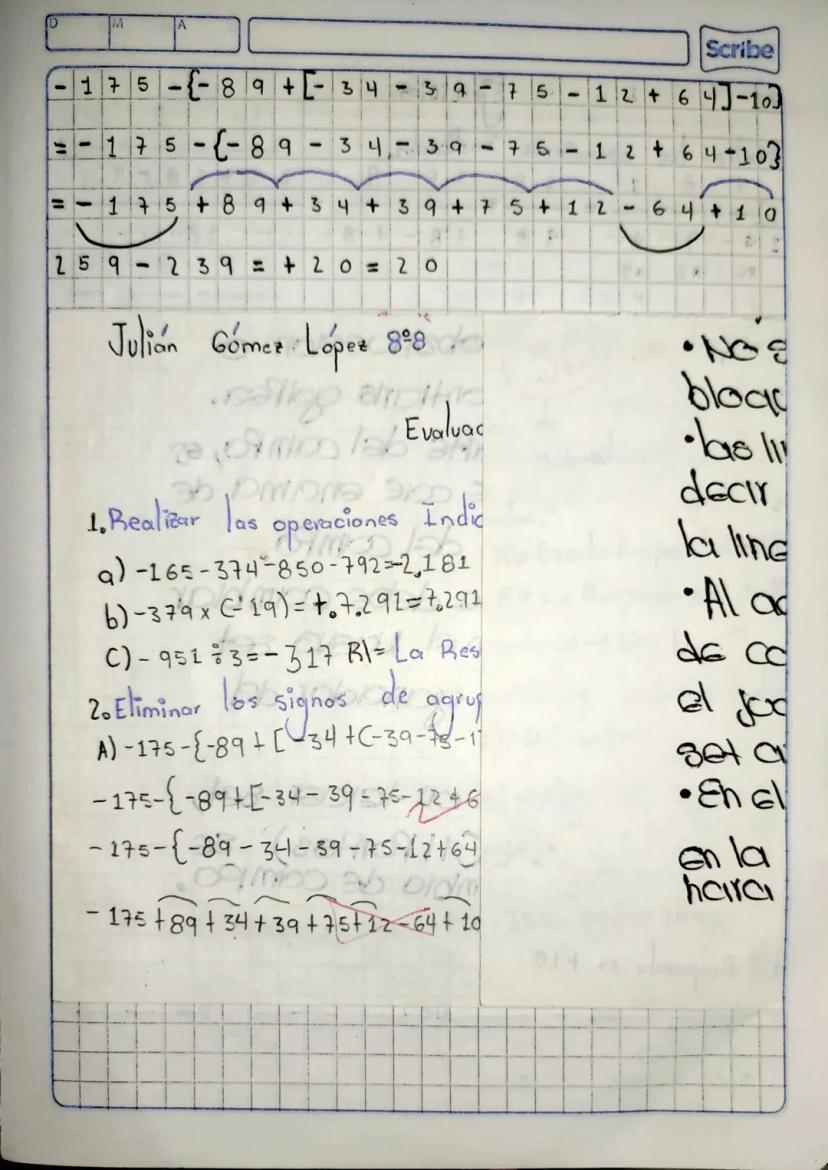 D M A
Scribe
- 1 7 5 - { - 8 9 + [ - 3 4 - 3 9 - 7 5 - 1 2 + 6 4 ] - 10 }
= - 1 7 5 - { - 8 9 - 3 4 - 3 9 - 7 5 - 1 2 + 6 4 - 1 0 }
= - 1 7 5 + 8 9 + 3 4 + 3 9 + 7 5 + 1 2 - 6 4 + 1 0
2 5 9 - 2 3 9 = + 2 0 = 2 0
Julián Gómez López 8º8
Evaluac
1. Realizar las operaciones Indic
a) -165 - 374 - 850 - 792 = -2,181
b) -379 x (-19) = +.7.291 = 7.291
C) - 951 ÷ 3 = - 317 R/= La Res
2. Eliminar los signos de agrup
A) -175 - { -89 + [ -34 + (-39 - 75 - 1
- 175 - { -89 + [ -34 - 39 - 75 - 12 + 6
- 175 - { -89 - 34 - 39 - 75 - 12 + 64
- 175 + 89 + 34 + 39 + 75 + 12 - 64 + 10
• NO
bloq
• las
decir
la line
• Al
de co
el
set
• En el
en la
hara